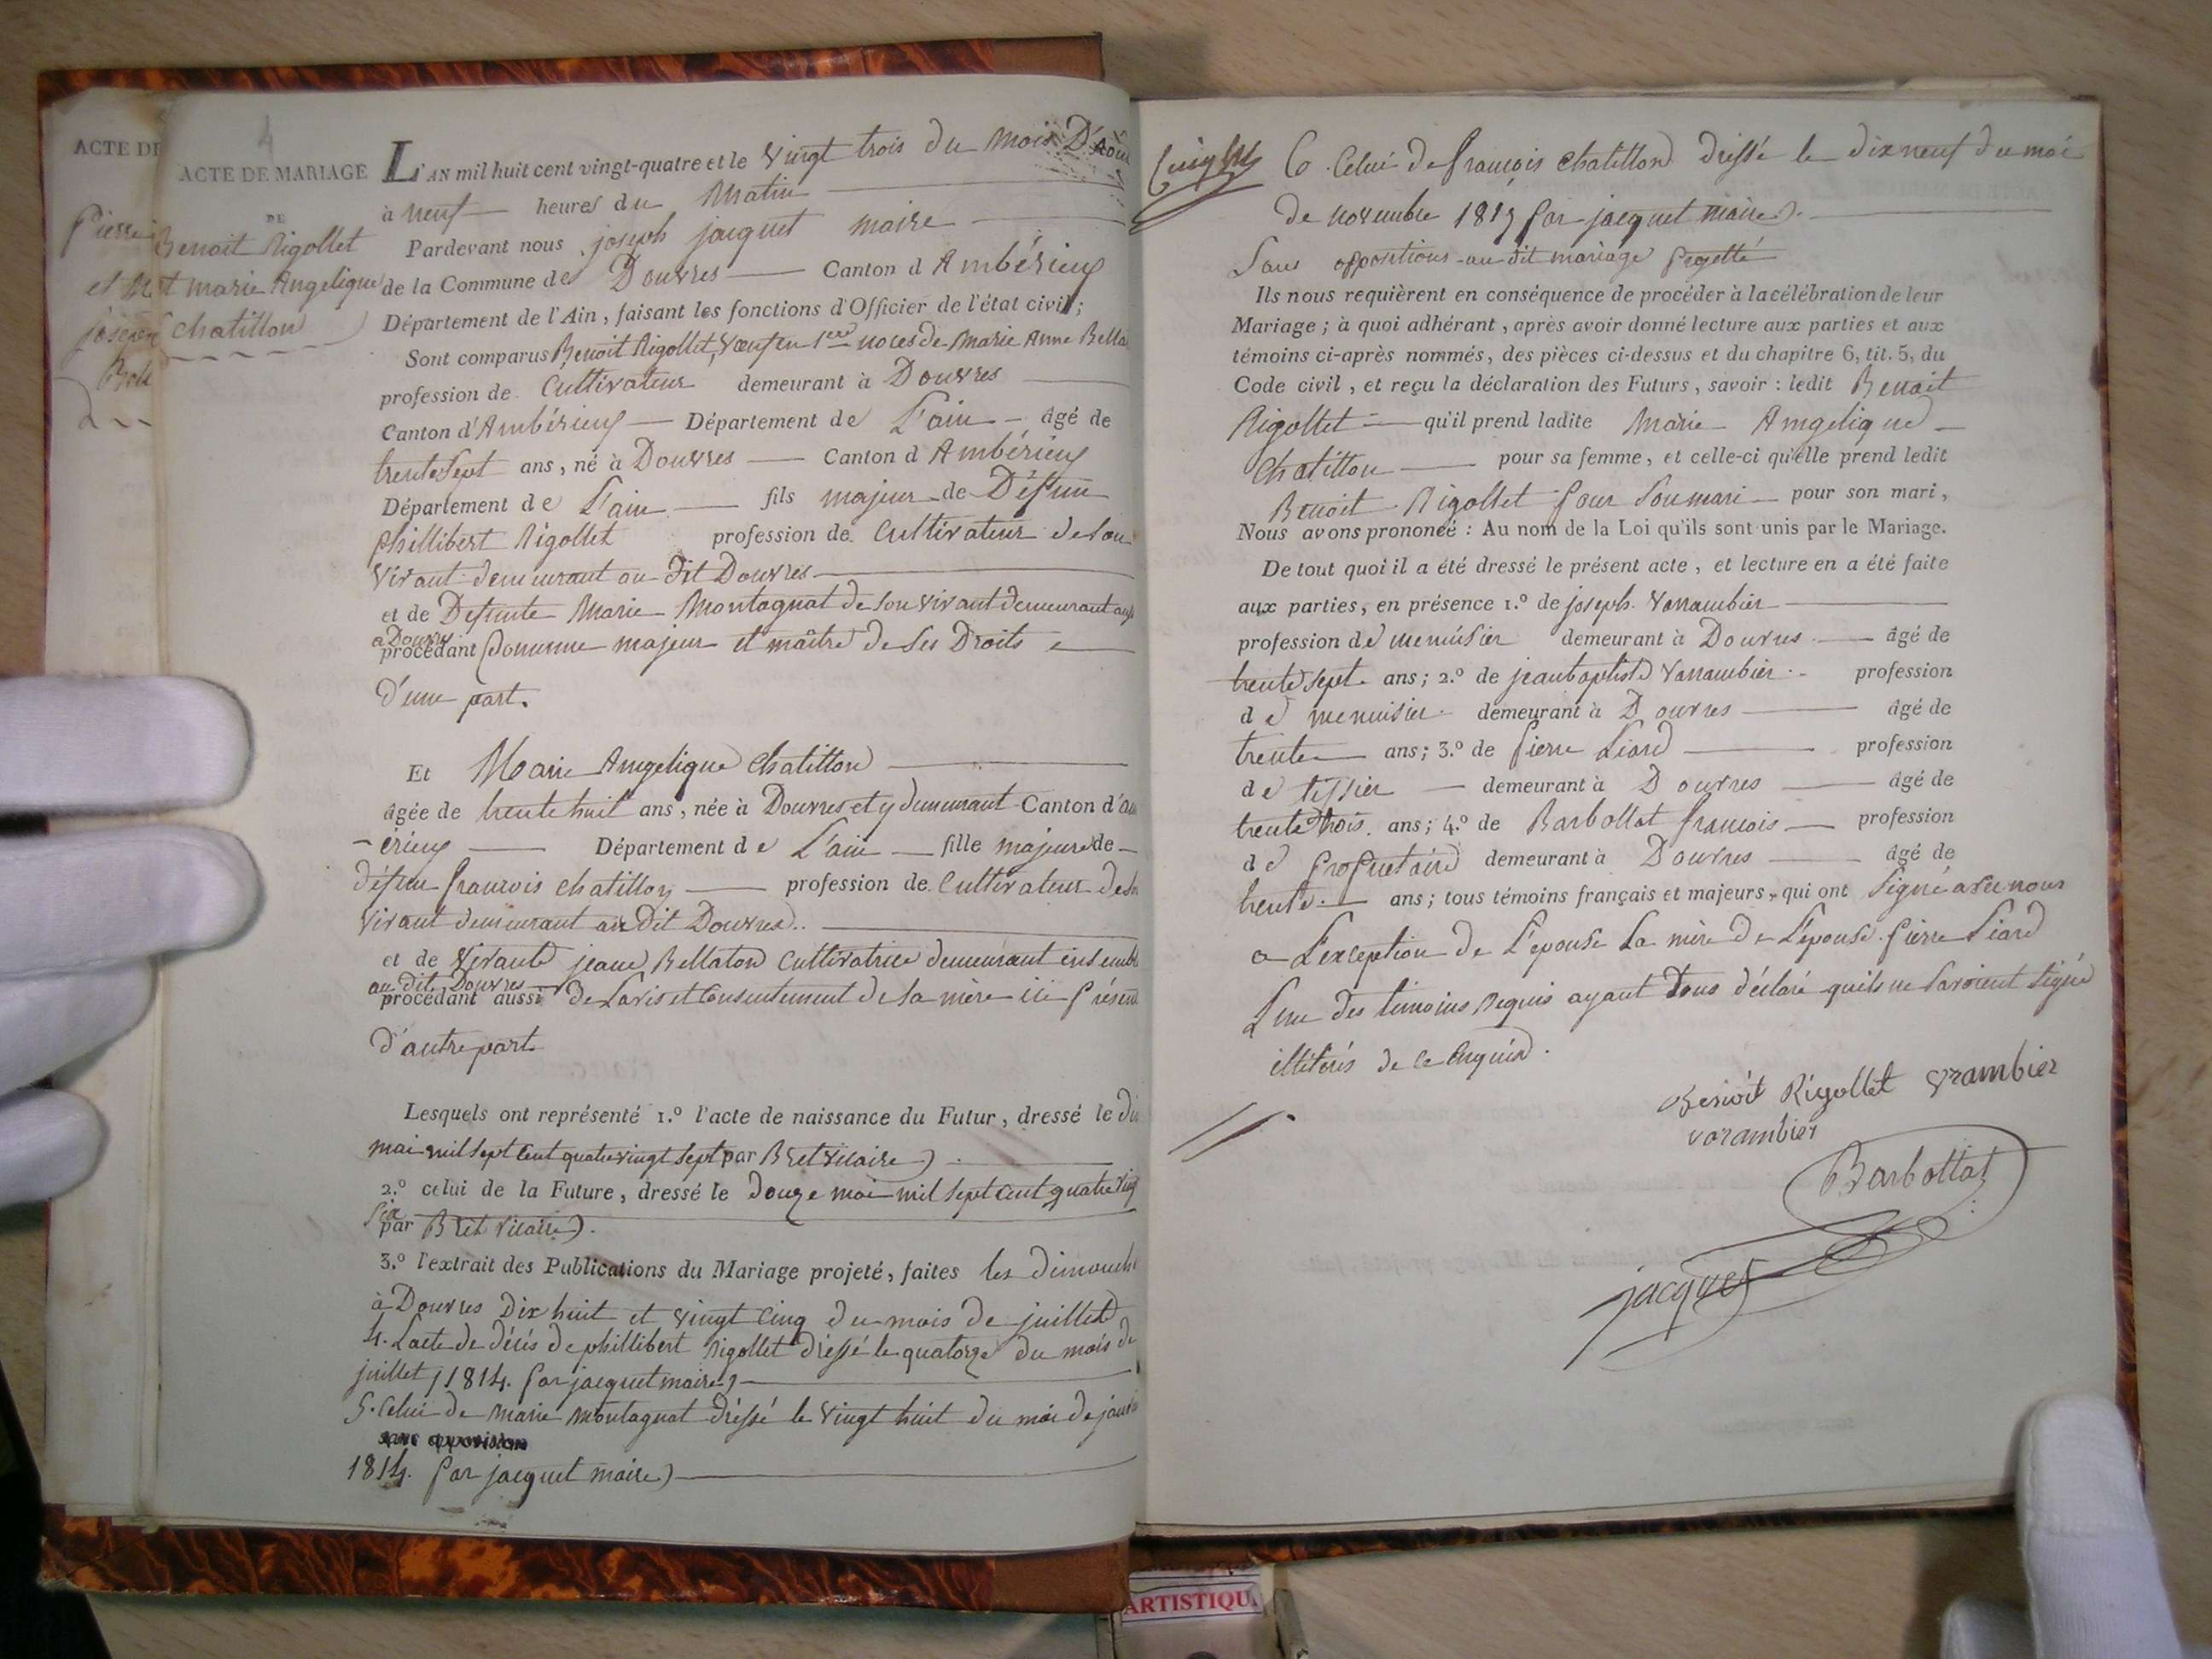 ACTE DE
Pierre
et
joseph
4
ACTE DE MARIAGE
DE
Benoit Rigollet
et marie Angelique
Chatillon
L'AN mil huit cent vingt-quatre et le vingt trois du mois D'Aout
à neuf heures du matin
Pardevant nous joseph jacquet maire
de la Commune de Douvres Canton d'Ambérieux
Département de l'Ain, faisant les fonctions d'Officier de l'état civil;
Sont comparus Benoit Rigollet, Veuf en 1ere noces de Marie Anne Bella
profession de Cultivateur demeurant à Douvres
Canton d'Ambérieux Département de L'ain âgé de
trente Sept ans, né à Douvres Canton d'Ambérieux
Département de L'ain fils majeur de Défunt
phillibert Rigollet profession de Cultivateur de Son
Vivant demeurant au dit Douvres
et de Défunte Marie Montagnat de Son vivant demeurant aussi
a Douvres
procédant Comme majeur et maître de Ses Droits
d'une part.
Et Marie Angelique Chatillon
âgée de trente huit ans, née à Douvres et y demeurant Canton d'am
-érieux Département de L'ain fille majeure de
défun françois chatillon profession de Cultivateur de Son
vivant demeurant au Dit Douvres..
et de Vivante jeane Bellaton Cultivatrice demeurant ensemble
au dit Douvres
procédant aussi de Lavis et Consentement de Sa mère ici présente
d'autre part.
Lesquels ont représenté 1.º l'acte de naissance du Futur, dressé le dix
mai mil Sept Cent quatre vingt Sept par Bret vicaire)
2.º celui de la Future, dressé le Douze mai mil Sept Cent quatre vingt
Six
par Bret vicaire).
3.º l'extrait des Publications du Mariage projeté, faites les dimanche
à Douvres Dix huit et vingt Cinq du mois de juillet
4. Lacte de décès de phillibert Rigollet dréssé le quatorze du mois de
juillet 1814. par jacquet maire)
5. Celui de Marie Montagnat dréssé le vingt huit du moi de janvier
sans opposition
1814. par jacquet maire)
6. Celui de françois chatillon dréssé le dix neuf du moi
de novembre 1815 par jacquet maire).
Sans oppositions au dit mariage progetté
Ils nous requièrent en conséquence de procéder à la célébration de leur
Mariage; à quoi adhérant, après avoir donné lecture aux parties et aux
témoins ci-après nommés, des pièces ci-dessus et du chapitre 6, tit. 5, du
Code civil, et reçu la déclaration des Futurs, savoir: ledit Benoit
Rigollet qu'il prend ladite Marie Angelique
Chatillon pour sa femme, et celle-ci qu'elle prend ledit
Benoit Rigollet pour Son mari pour son mari,
Nous avons prononcé: Au nom de la Loi qu'ils sont unis par le Mariage.
De tout quoi il a été dressé le présent acte, et lecture en a été faite
aux parties, en présence 1.º de joseph Varrambier
profession de menuisier demeurant à Douvres âgé de
trente sept ans; 2.º de jean baptiste Varrambier profession
de menuisier demeurant à Douvres âgé de
trente ans; 3.º de pierre Liard profession
de tissier demeurant à Douvres âgé de
trente trois ans; 4.º de Barbollat françois profession
de propriétaire demeurant à Douvres âgé de
trente ans; tous témoins français et majeurs, qui ont Signé avec nous
a L'exception de L'épouse La mère de L'épouse pierre Liard
L'un des témoins Requis ayant tous déclaré quils ne Savoient Signé
illitérés de ce Enquis.
Benoit Rigollet vrambier
varambier
Barbollat
jacquet
ARTISTIQU